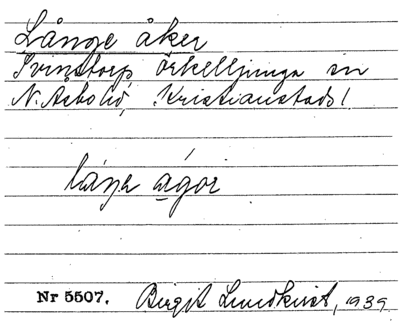 Långe åker
Svinstorp Örkelljunga sn
N. Åsbo hd, Kristianstads l
Nr 5507. Birgit Lundkvist, 1939.